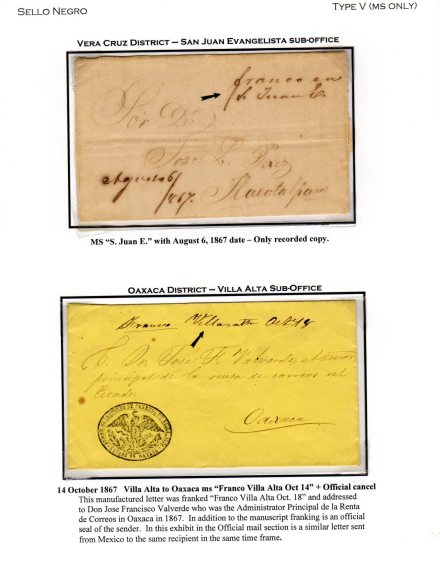 SELLO NEGRO
TYPE V (MS ONLY)
VERA CRUZ DISTRICT – SAN JUAN EVANGELISTA SUB-OFFICE
franco en
S. Juan E.
Sor Dn.
Jose L. Perez
Agosto 6/
867.
Tlacotalpam
MS “S. Juan E.” with August 6, 1867 date – Only recorded copy.
OAXACA DISTRICT – VILLA ALTA SUB-OFFICE
Franco Villaalta Oct. 18
Dn. Jose F. Valverde
principal de la renta de correos del
Oaxaca
14 October 1867 Villa Alta to Oaxaca ms “Franco Villa Alta Oct 14” + Official cancel
This manufactured letter was franked “Franco Villa Alta Oct. 18” and addressed
to Don Jose Francisco Valverde who was the Administrator Principal de la Renta
de Correos in Oaxaca in 1867. In addition to the manuscript franking is an official
seal of the sender. In this exhibit in the Official mail section is a similar letter sent
from Mexico to the same recipient in the same time frame.